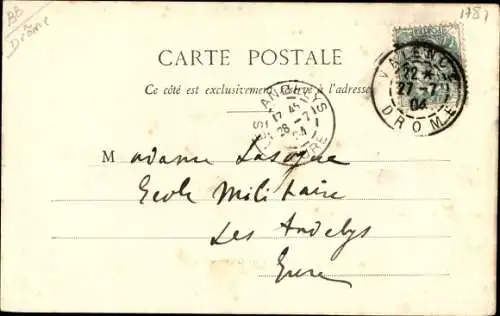 BB
Drôme
1787
CARTE POSTALE
Ce côté est exclusivement réservé à l'adresse
VALENCE
22 *
27 - 7
04
DROME
LES ANDELYS
17 45
28 - 7
04
EURE
Madame
Ecole Militaire
Les Andelys
Eure